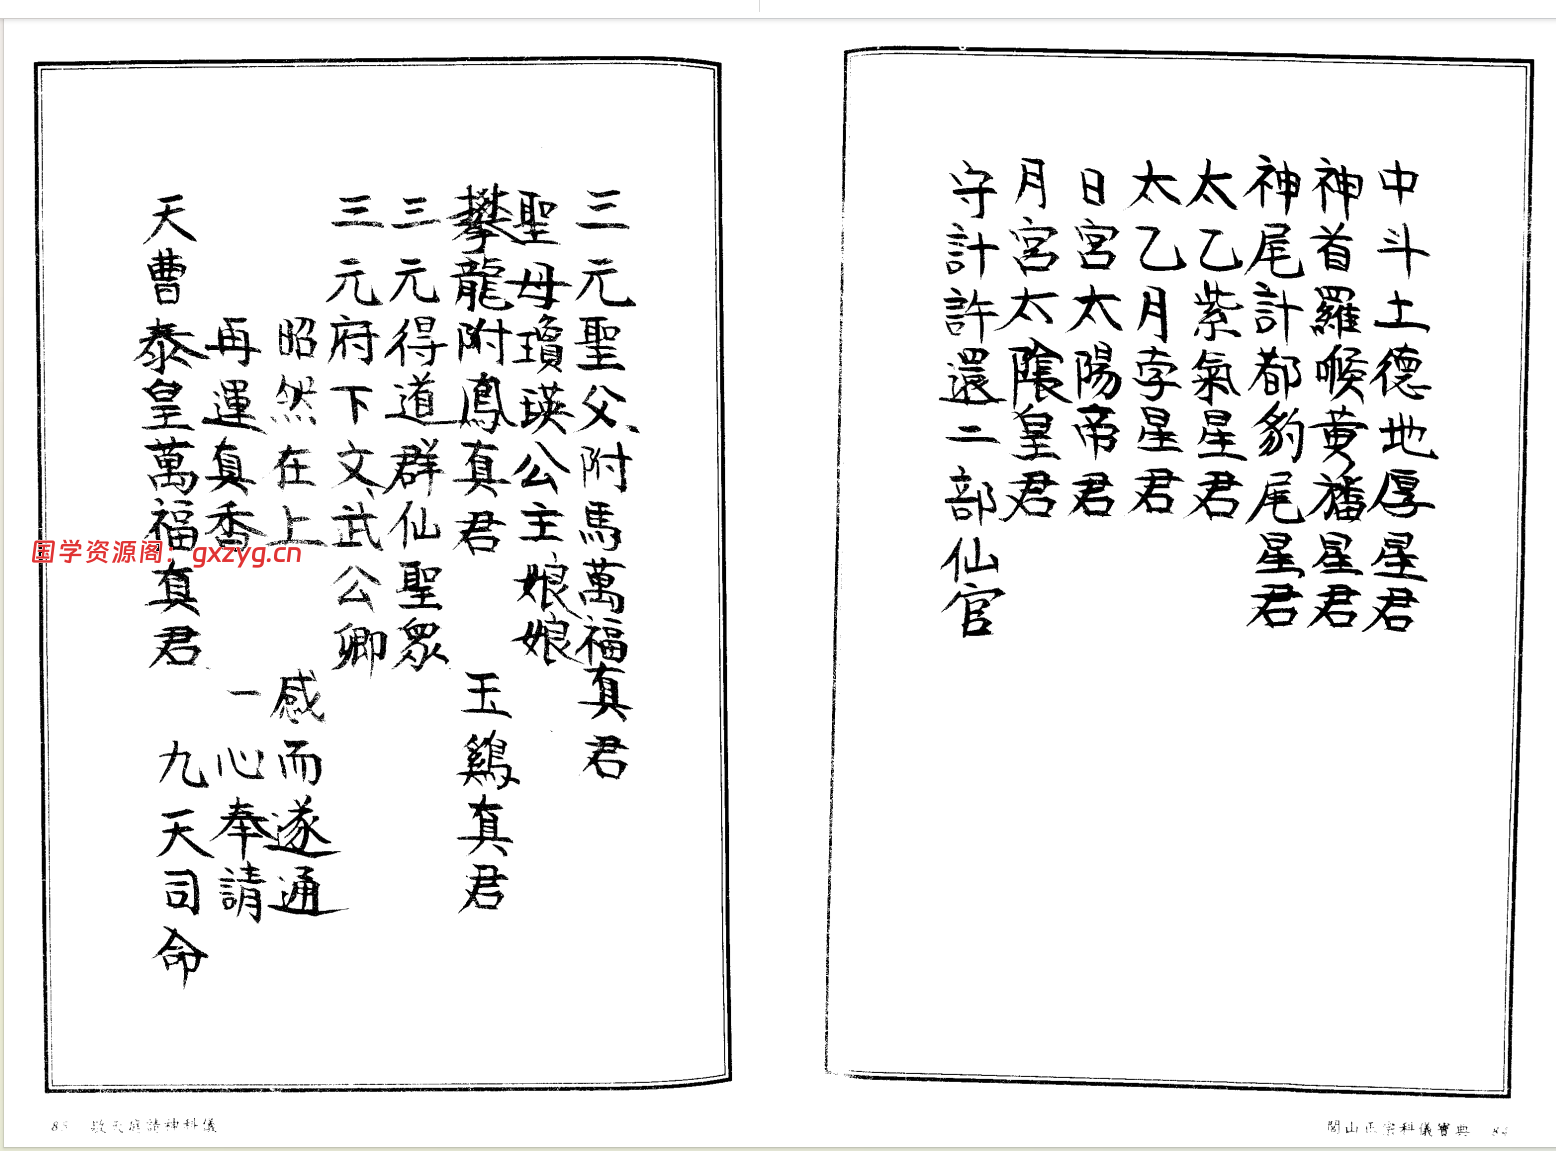 中斗土德地厚星君
神首羅睺黄旛星君
神尾計都豹尾星君
太乙紫氣星君
太乙月孛星君
日宮太陽帝君
月宮太陰皇君
守計許還二部仙官
閭山正宗科儀寶典 84
三元聖父附馬萬福真君
聖母瓊瑛公主娘娘
攀龍附鳳真君 玉鷄真君
三元得道群仙聖眾
三元府下文武公卿
昭然在上 感而遂通
再運真香 一心奉請
天曹泰皇萬福真君 九天司命
85 敬天庭請神科儀
国学资源阁：gxzyg.cn